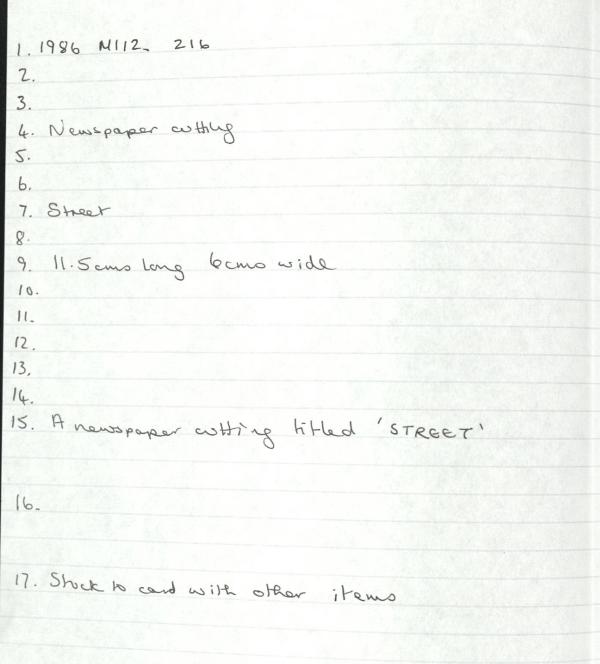 1. 1986 M112. 216
2.
3.
4. Newspaper cutting
5.
6.
7. Street
8.
9. 11.5cms long 6cms wide
10.
11.
12.
13.
14.
15. A newspaper cutting titled 'STREET'
16.
17. Stuck to card with other items